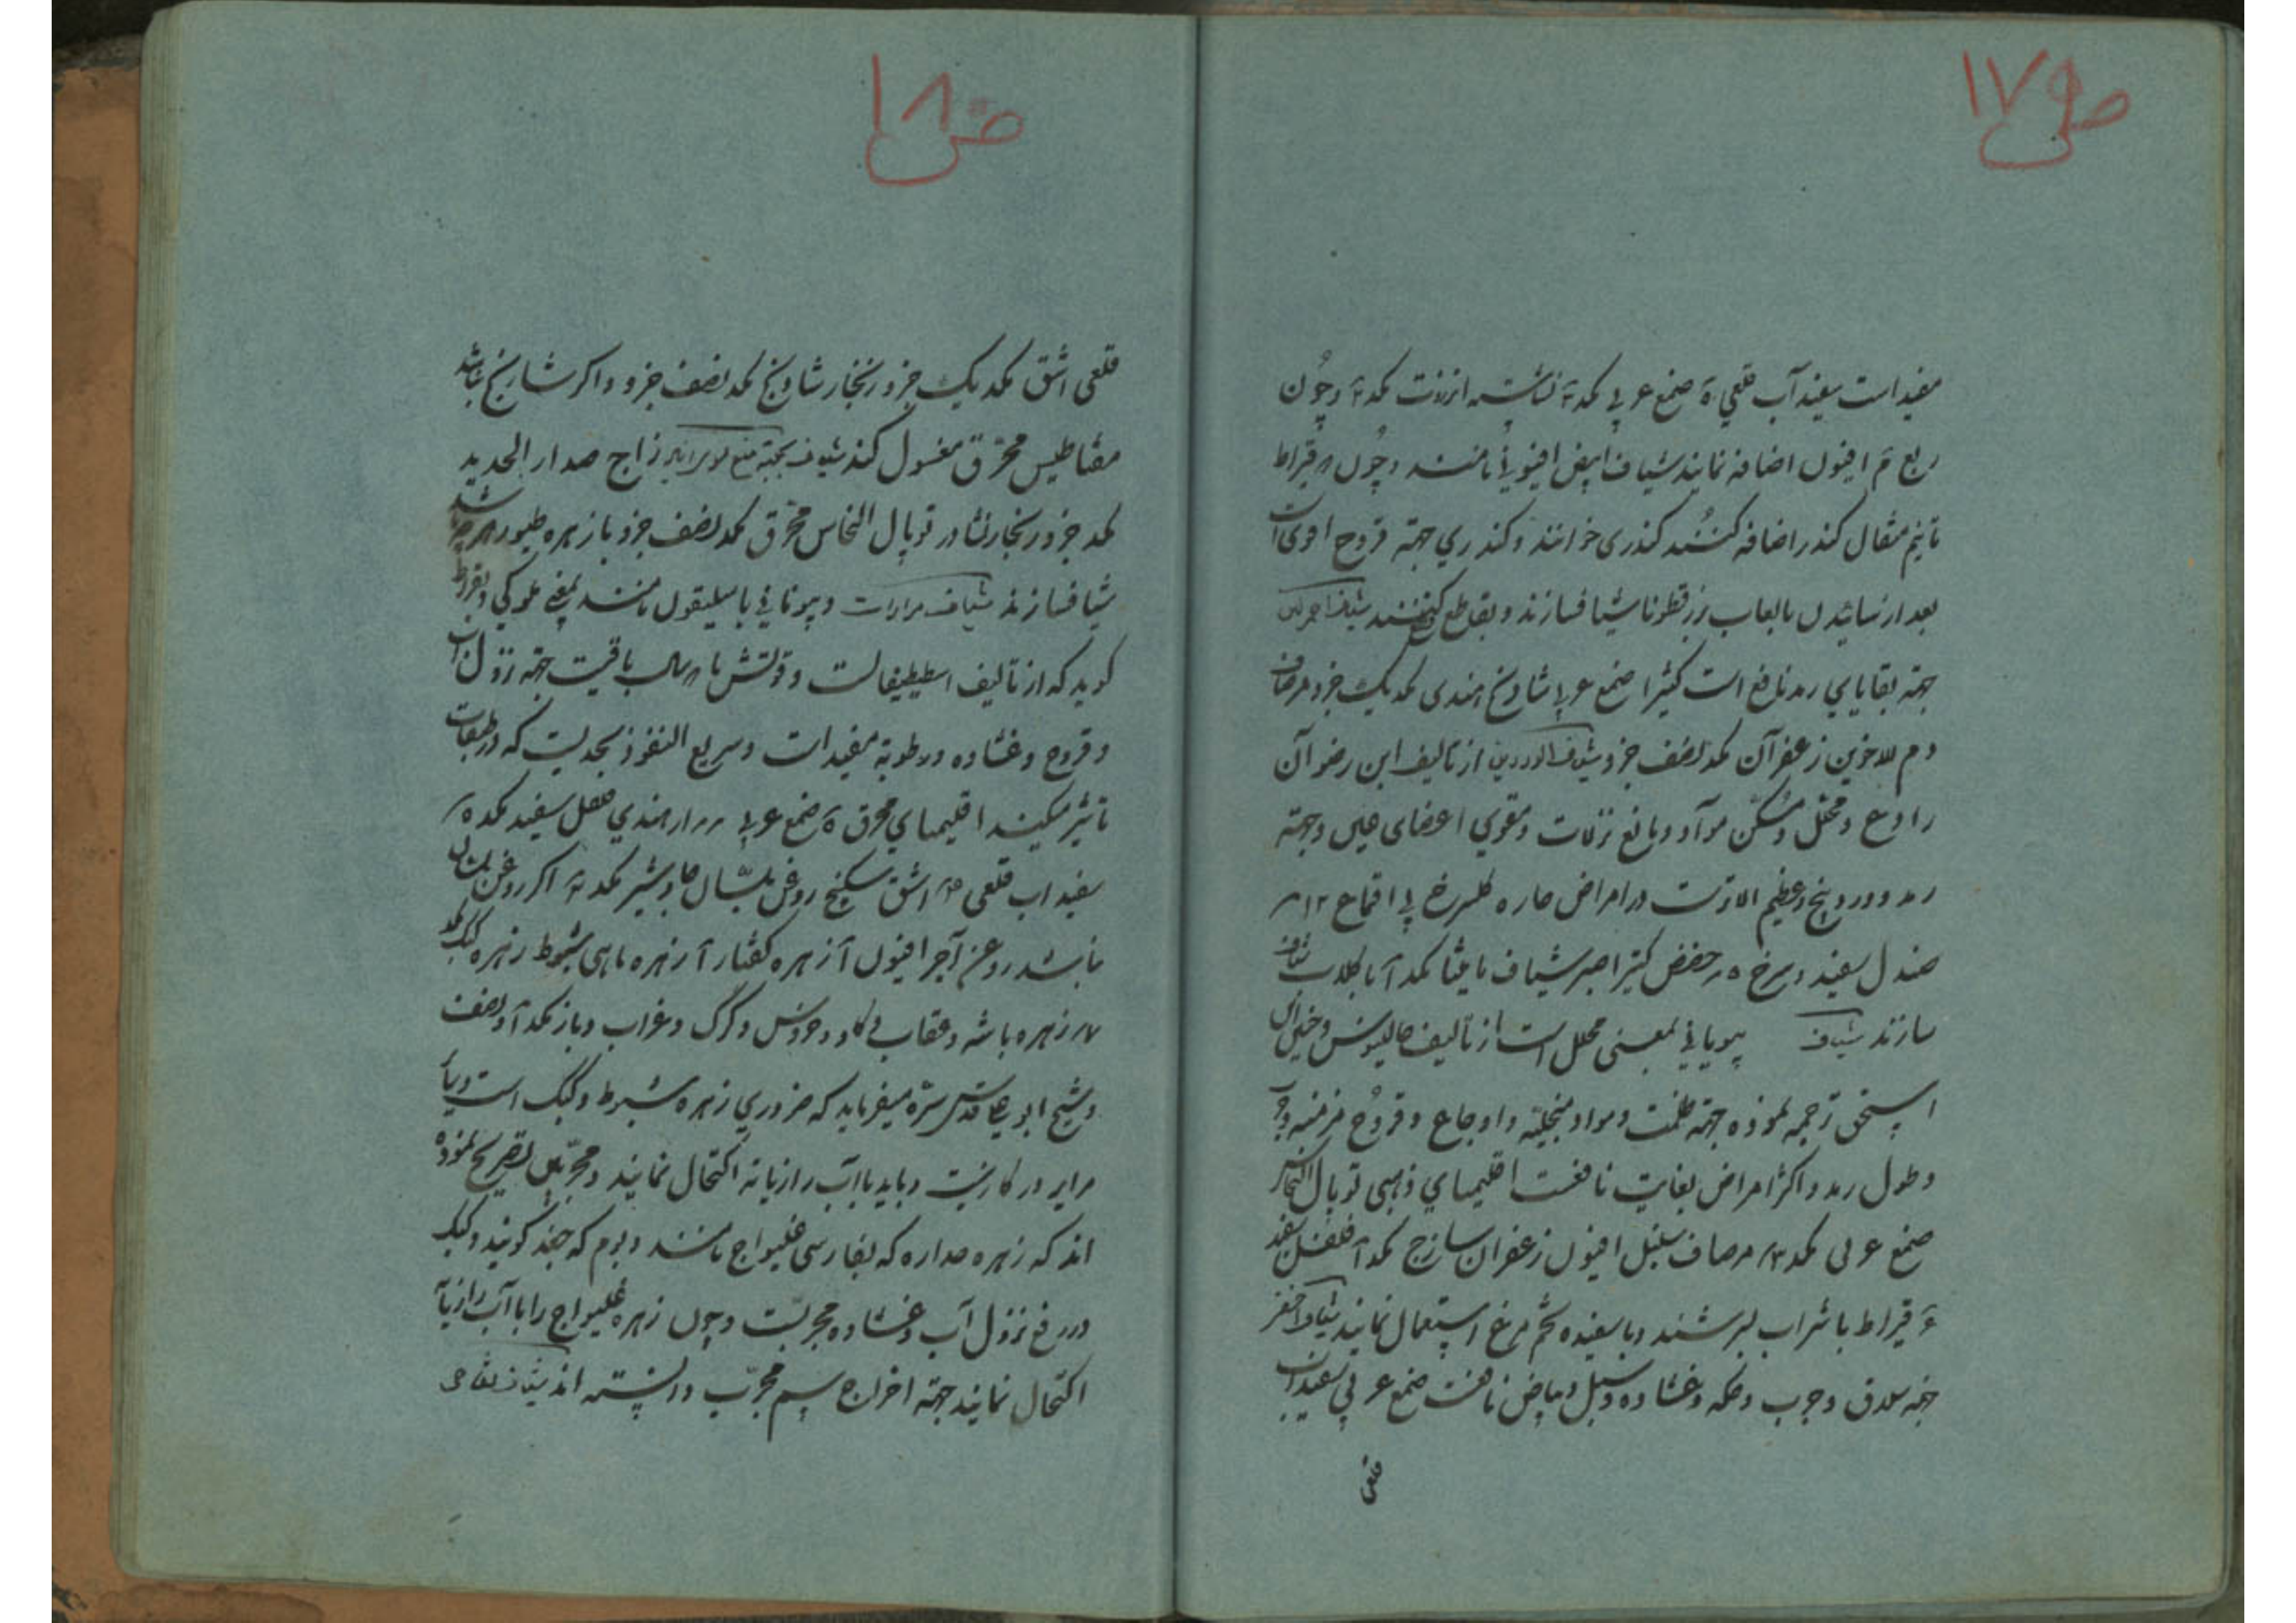 ص ۱۷۹
مفید است سفیدآب قلعی ۵ صمغ عربی کمد ۴ نشاسته انزروت کمد ۴ وچون
ربع م افیون اضافه نمایند شیاف ابیض افیونی نامند وچون قیراط
تا نیم مثقال کندر اضافه کنند کندری خوانند وکندری جهة قروح اقوی است
بعد از سائیدن بالعاب بزرقطونا شیاف سازند وبقاطع شیاف احمر لین
جهة بقایای رمد نافع است کثیرا صمغ عربی شادنج هندی کمد یک جزو مرصاف
دم الاخوین زعفران کمد نصف جزو شیاف الوردین از تالیف ابن رضوآن
رادع ومحلل ومسکن موآد ومانع نزلات ومقوی اعضای عین وجهة
رمد و وردینج وعظیم الاثرست در امراض حاره کلسرخ بی اقماع ۱۲
صندل سفید وسرخ ۵ حضض کتیرا صبر شیاف مامیثا کمد آ با کلاب شیاف
سازند شیاف پیویانی لمعنی محلل است از تألیف جالینوس وحنین ابن
اسحق ترجمه نموده جهة ظلمت ومواد متحلبه واوجاع وقروح مزمنه وجرب
وطول رمد واکثر امراض بغایت نافعست اقلیمیای ذهبی توبال النحاس
صمغ عربی کمد مرصاف سنبل افیون زعفران سازج کمد فلفل سفید
۴ قیراط با شراب بسرشند وبا سفیده تخم مرغ استعمال نمایند شیاف اخضر
جهة سلاق وجرب وحکه وغشاوه وسبل وبیاض نافعست صمغ عربی سفیداب
قلعی
ص ۱۸۰
قلعی اشق کمد یک جزو زنجار شادنج کمد نصف جزو واکر شادنج نباشد
مقناطیس محرق مغسول کنند شیاف بجهة منع زاج صدار الحدید
کمد جزو زنجار نشادر توبال النحاس محرق کمد نصف جزو با زهره طیور هرچه باشد
شیاف سازند شیاف مرارات وبیونانی باسلیقون نامند یعنی ملوکی وبقراط
کوید که از تألیف اسطیطیفانست وقوتش تا سال باقیست جهة نزول آب
وقروح وغشاوه ورطوبة مفیدات وسریع النفوذ بحدیست که در طبقات
تاثیر میکند اقلیمیای محرق ۵ صمغ عربی هندی فلفل سفید کمد ۵
سفیداب قلعی اشق سکبینج روغن بلسان جاوشیر کمد ۴ اکر روغن بلسان
نباشد روغن آجر افیون آ زهره کفتار آ زهره ماهی شبوط زهره کبک کمد
زهره باشه وعقاب وکاو وخروس وکرک وغراب وباز کمد آ ونصف
وشیخ ابوعلی قدس سره میفرماید که ضروری زهره شبوط وکبک است وبا
مرایر در کار نیست وباید با آب رازیانه اکتحال نمایند ومجربین تصریح نموده
اند که زهره صداره که بفارسی غلیواج نامند وبوم که جغد کویند وکبک
در رفع نزول آب وغشاوه مجربست وچون زهره غلیواج را با آب رازیانه
اکتحال نمایند جهة اخراج سم مجرب دانسته اند شیاف